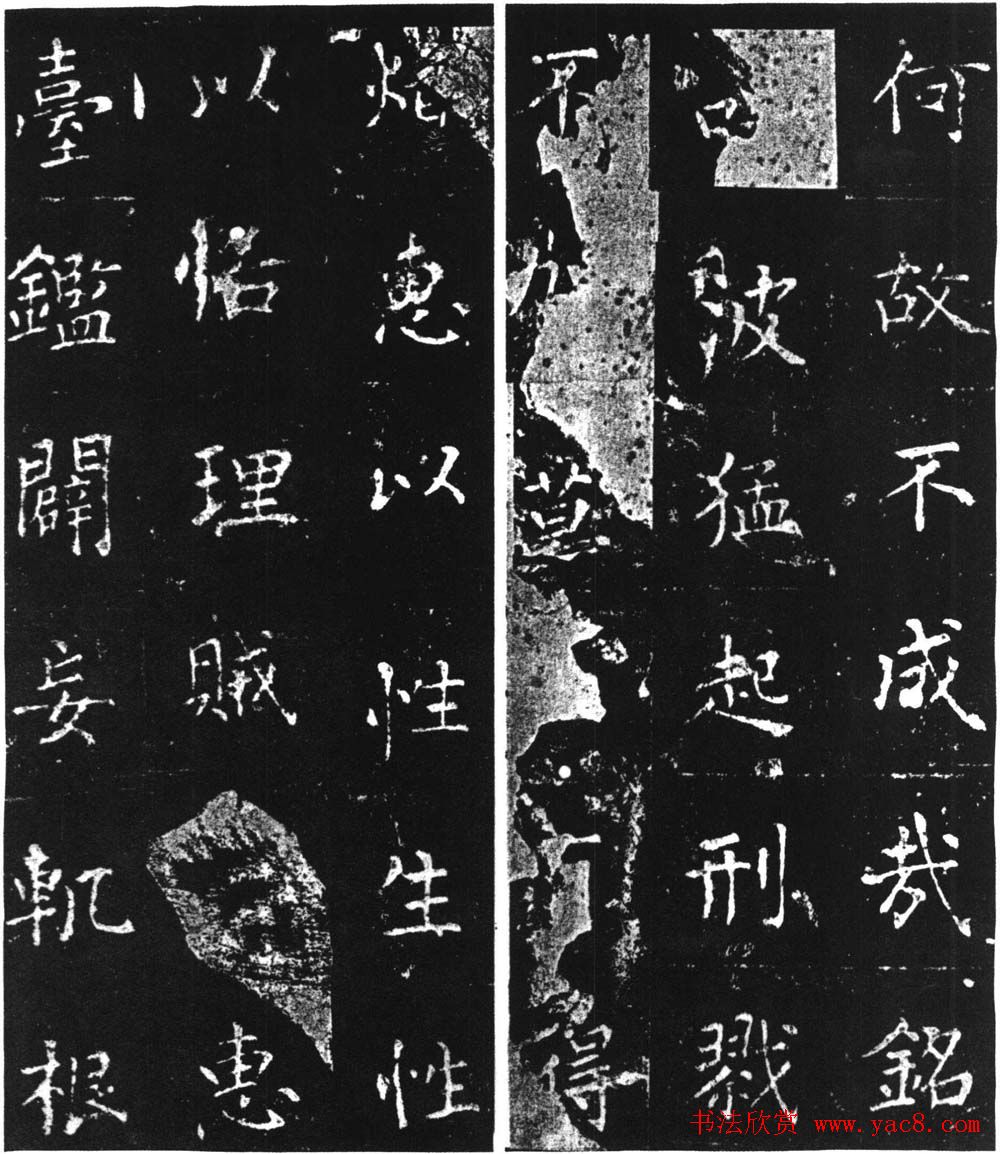 何故不成哉銘
陂猛起刑戮
不得
惠以性生性
以恬理賊惠
臺鑑闢妄軌根
书法欣赏 www.yac8.com